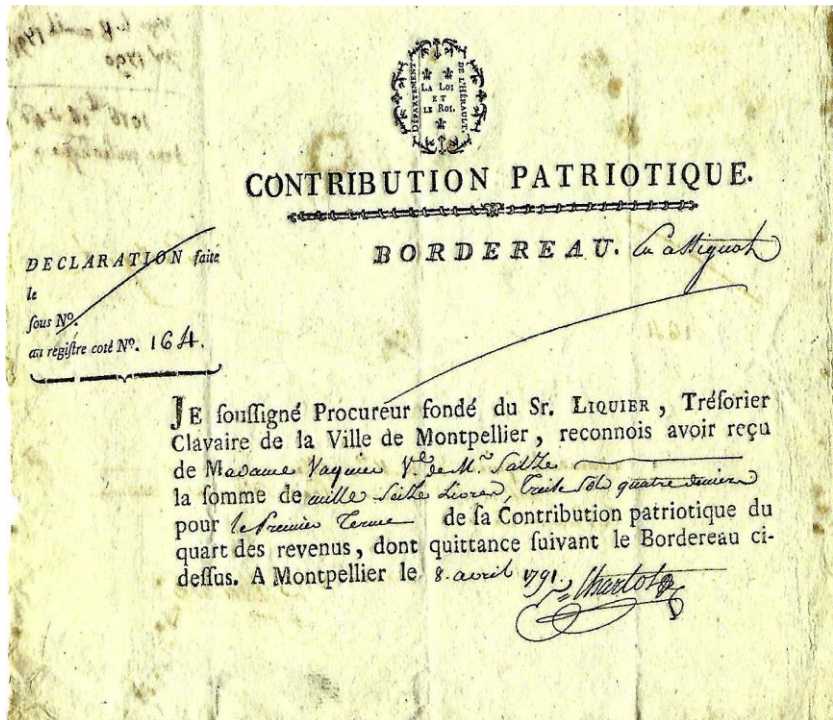 DÉPARTEMENT DE L'HÉRAULT.
LA LOI
ET
LE ROI.
CONTRIBUTION PATRIOTIQUE.
BORDEREAU. En assignats
DECLARATION faite
le
sous Nº.
au registre coté Nº. 164.
JE soussigné Procureur fondé du Sr. LIQUIER, Trésorier
Clavaire de la Ville de Montpellier, reconnois avoir reçu
de Madame Vaquier Ve. de Mr.
la somme de mille seize Livres, treize sols quatre deniers
pour le Premier Terme de sa Contribution patriotique du
quart des revenus, dont quittance suivant le Bordereau ci-
dessus. A Montpellier le 8. avril 1791.